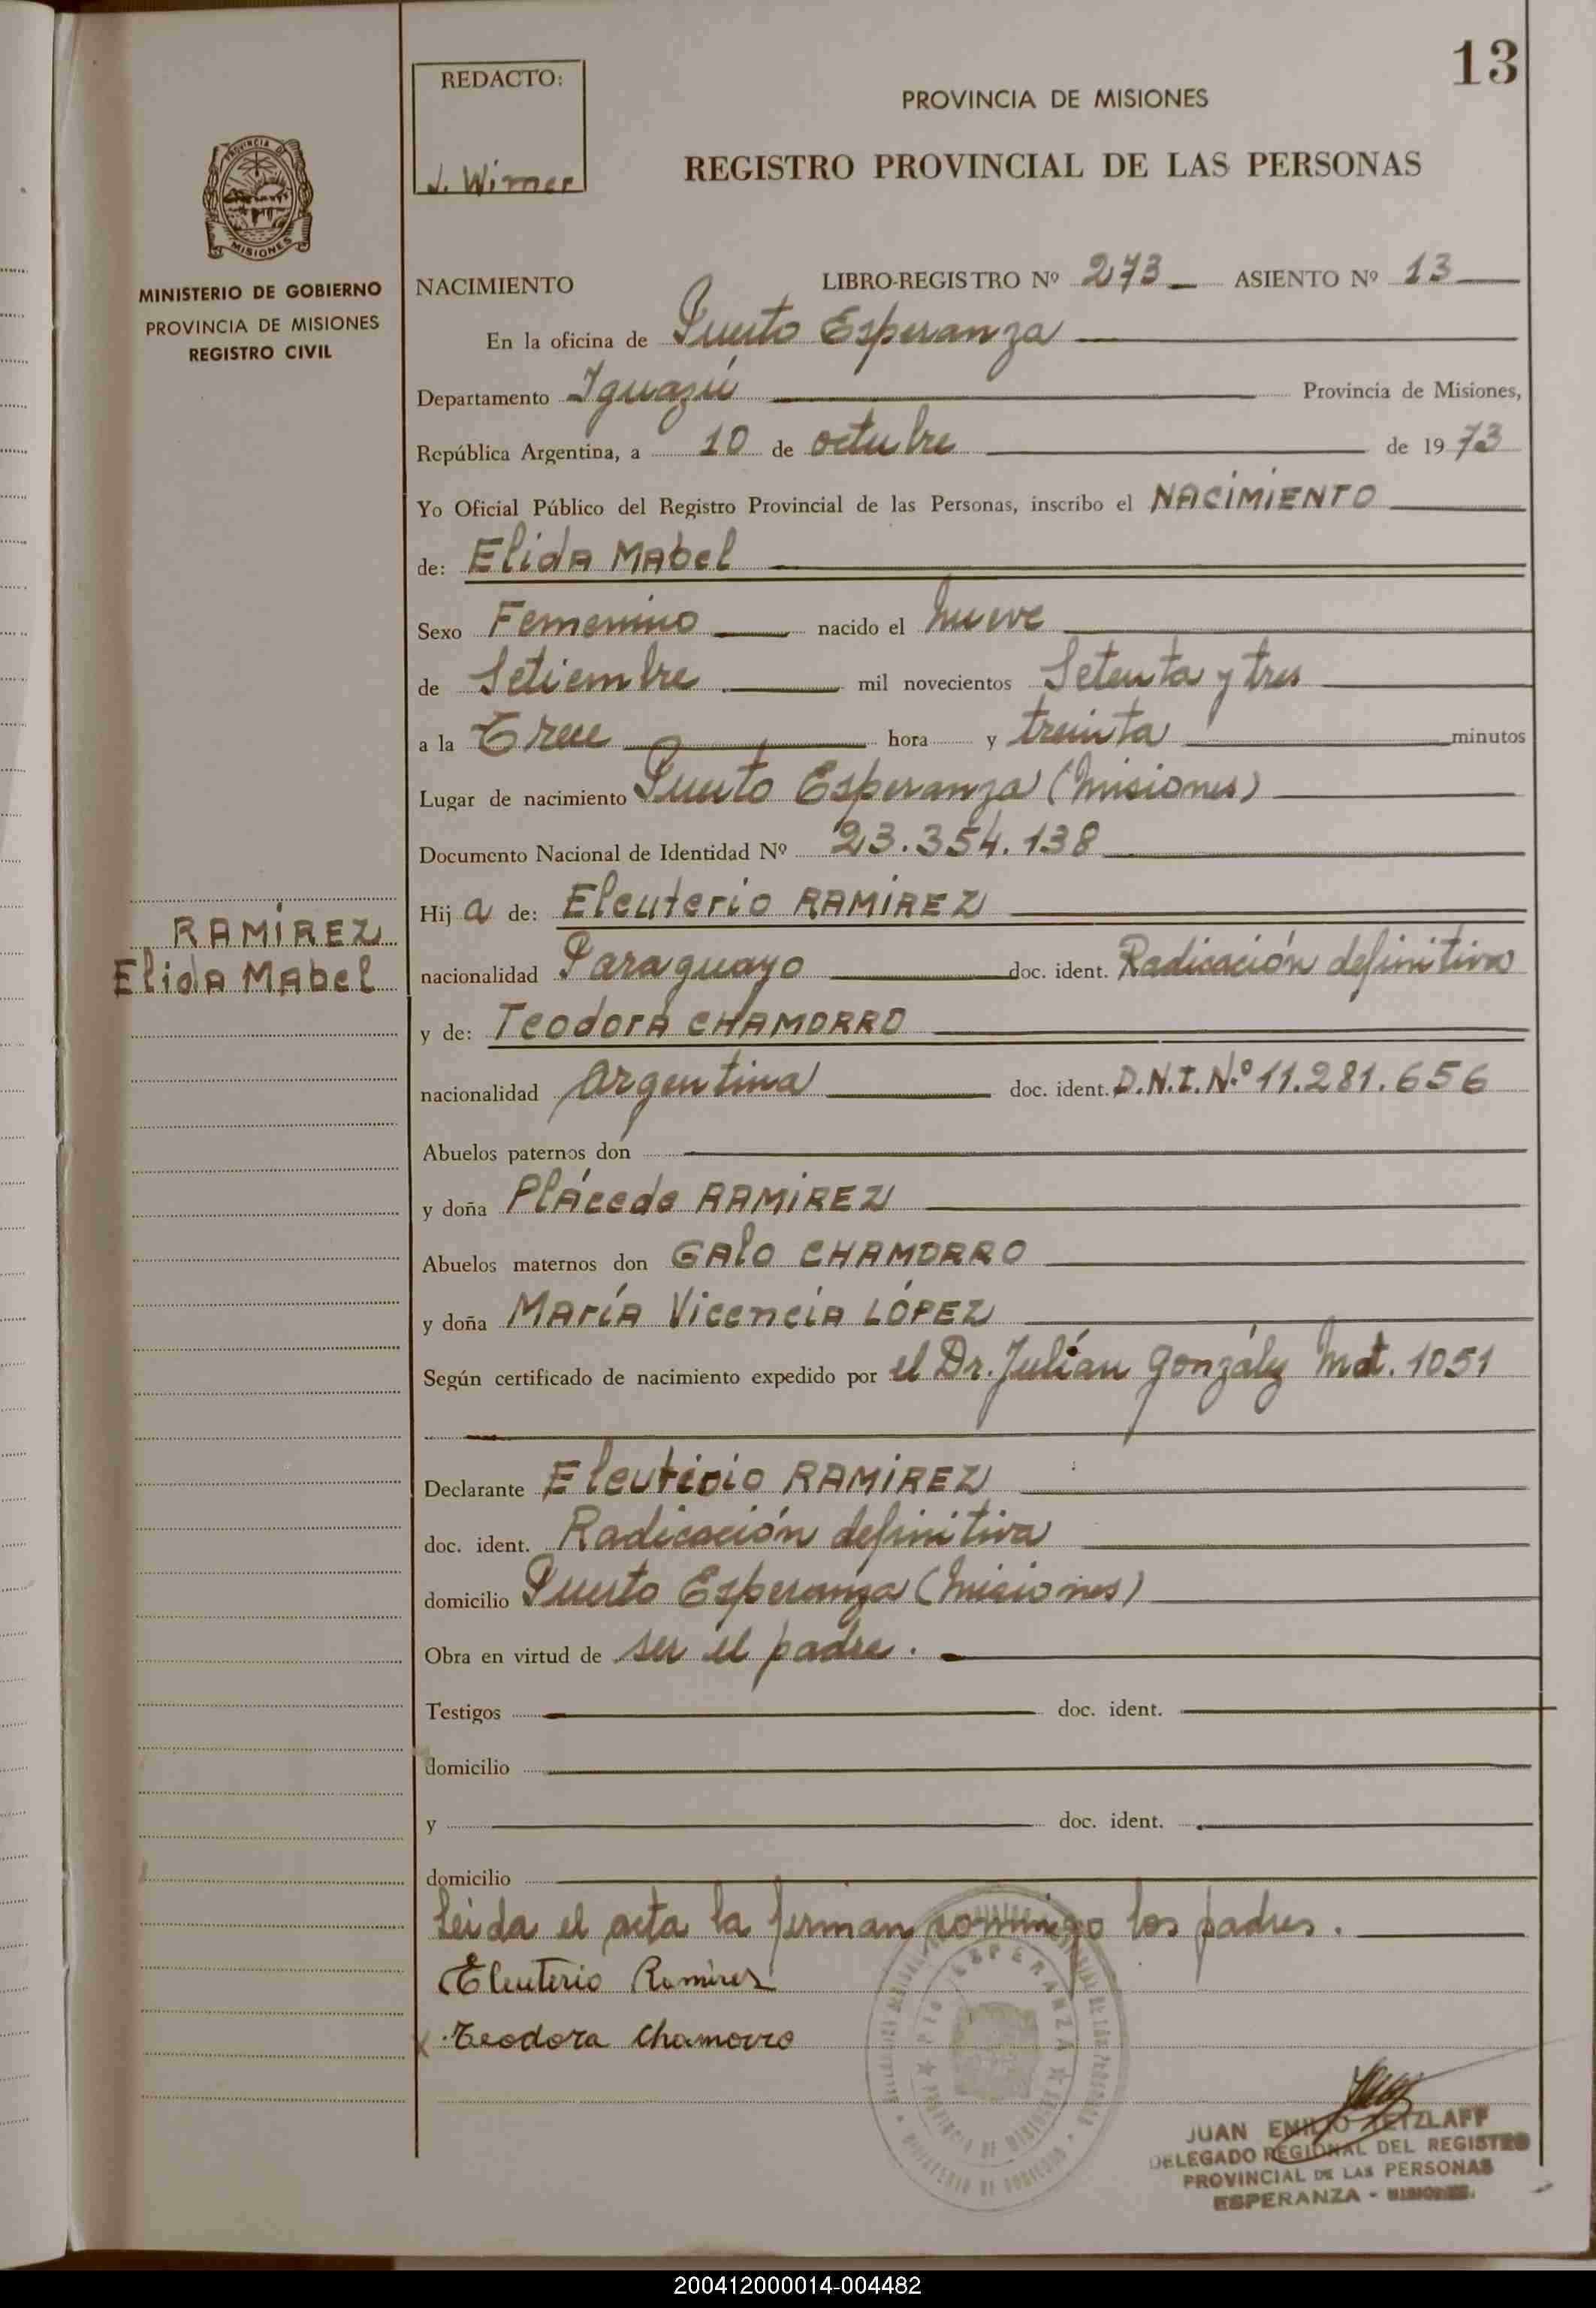 13
REDACTO:
J. Wirner
PROVINCIA DE MISIONES
REGISTRO PROVINCIAL DE LAS PERSONAS
PROVINCIA DE
MISIONES
MINISTERIO DE GOBIERNO
PROVINCIA DE MISIONES
REGISTRO CIVIL
NACIMIENTO LIBRO-REGISTRO Nº 273 ASIENTO Nº 13
En la oficina de Puerto Esperanza
Departamento Iguazú Provincia de Misiones,
República Argentina, a 10 de octubre de 1973
Yo Oficial Público del Registro Provincial de las Personas, inscribo el NACIMIENTO
de: Elida Mabel
Sexo Femenino nacido el nueve
de Setiembre mil novecientos Setenta y tres
a la Trece hora y treinta minutos
Lugar de nacimiento Puerto Esperanza (Misiones)
Documento Nacional de Identidad Nº 23.354.138
RAMÍREZ
Elida Mabel
Hija de: Eleuterio RAMÍREZ
nacionalidad Paraguayo doc. ident. Radicación definitiva
y de: Teodora CHAMORRO
nacionalidad Argentina doc. ident. D.N.I. N.º 11.281.656
Abuelos paternos don
y doña Pláceda RAMÍREZ
Abuelos maternos don Galo CHAMORRO
y doña María Vicencia LÓPEZ
Según certificado de nacimiento expedido por el Dr. Julián González Mat. 1051
Declarante Eleuterio RAMÍREZ
doc. ident. Radicación definitiva
domicilio Puerto Esperanza (Misiones)
Obra en virtud de ser el padre.
Testigos doc. ident.
domicilio
y doc. ident.
domicilio
Leida el acta la firman conmigo los padres.
Eleuterio Ramirez
Teodora Chamorro
ESPERANZA
PROVINCIA DE MISIONES
JUAN EMILIO RETZLAFF
DELEGADO REGIONAL DEL REGISTRO
PROVINCIAL DE LAS PERSONAS
ESPERANZA - MISIONES.
200412000014-004482